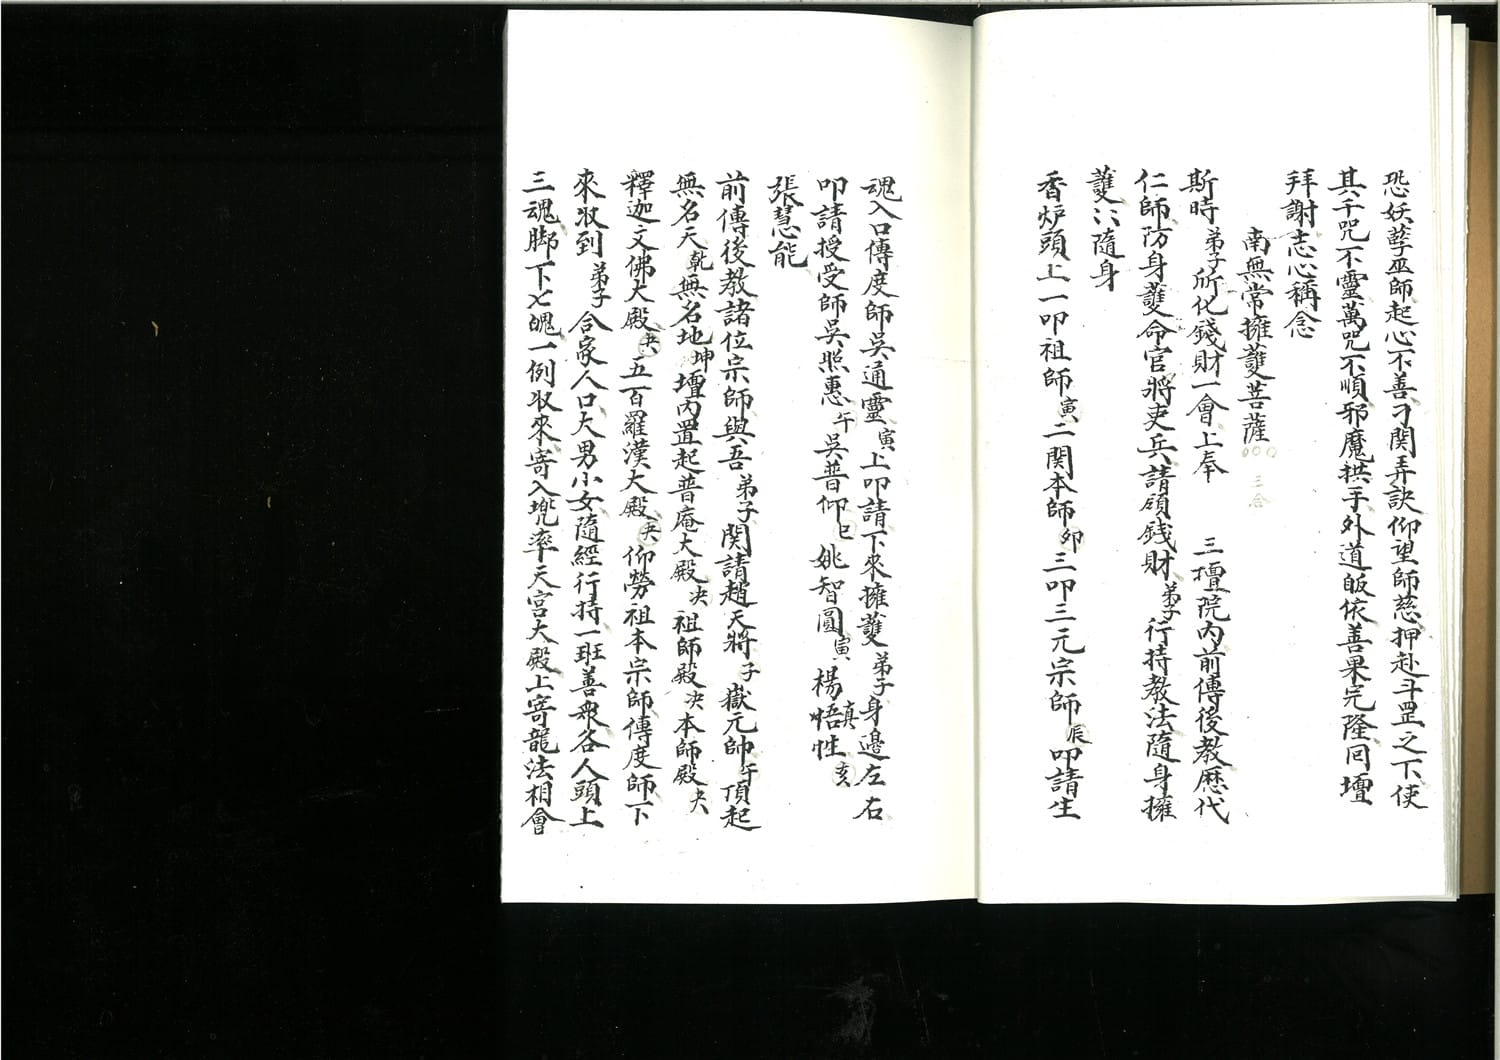 恐妖孽巫師起心不善刁関弄訣仰望師慈押赴斗罡之下使
其千咒不靈萬咒不順邪魔拱手外道皈依善果完隆同壇
拜謝志心稱念
南無常擁護菩薩 三念
斯時 弟子所化錢財一會上奉 三壇院內前傳後教歷代
仁師防身護命官將吏兵請領錢財弟子行持教法隨身擁
護〻隨身
香炉頭上一叩祖師寅二関本師卯三叩三元宗師辰叩請生
魂入口傳度師吳通靈寅上叩請下來擁護弟子身邊左右
叩請授受師吳照惠午吳普仰巳姚智圓寅楊悟真性亥
張慧能
前傳後教諸位宗師與吾弟子関請趙天將子嶽元帥午頂起
無名天乾無名地坤壇內置起普庵大殿决祖師殿决本師殿决
釋迦文佛大殿决五百羅漢大殿决仰勞祖本宗師傳度師下
來収到弟子合家人口大男小女隨經行持一班善衆各人頭上
三魂脚下七魄一例収來寄入兜率天宮大殿上寄龍法相會